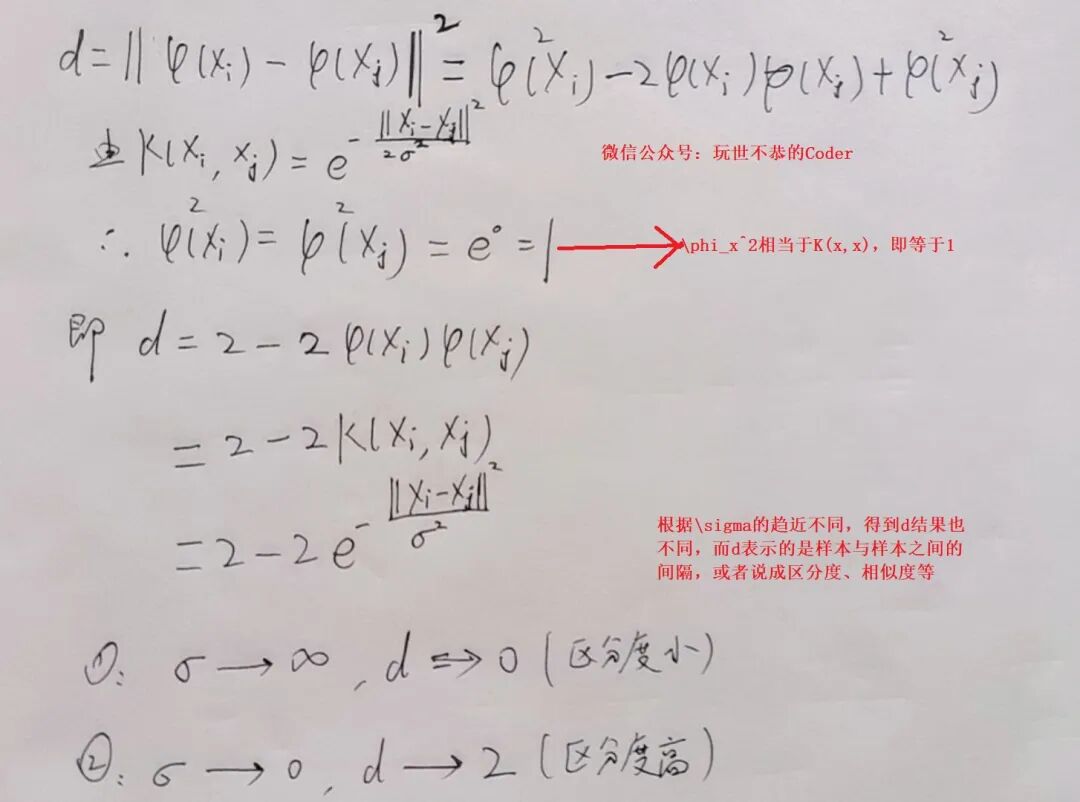 d = ‖φ(xᵢ) − φ(xⱼ)‖² = φ²(xᵢ) − 2φ(xᵢ)φ(xⱼ) + φ²(xⱼ)
由 K(xᵢ, xⱼ) = e^(−‖xᵢ−xⱼ‖²/2σ²)
微信公众号：玩世不恭的Coder
∴ φ²(xᵢ) = φ²(xⱼ) = e⁰ = 1
\phi_x^2相当于K(x,x)，即等于1
即 d = 2 − 2φ(xᵢ)φ(xⱼ)
= 2 − 2K(xᵢ, xⱼ)
= 2 − 2e^(−‖xᵢ−xⱼ‖²/σ²)
根据\sigma的趋近不同，得到d结果也
不同，而d表示的是样本与样本之间的
间隔，或者说成区分度、相似度等
①: σ → ∞, d ⇒ 0 (区分度小)
②: σ → 0, d → 2 (区分度高)